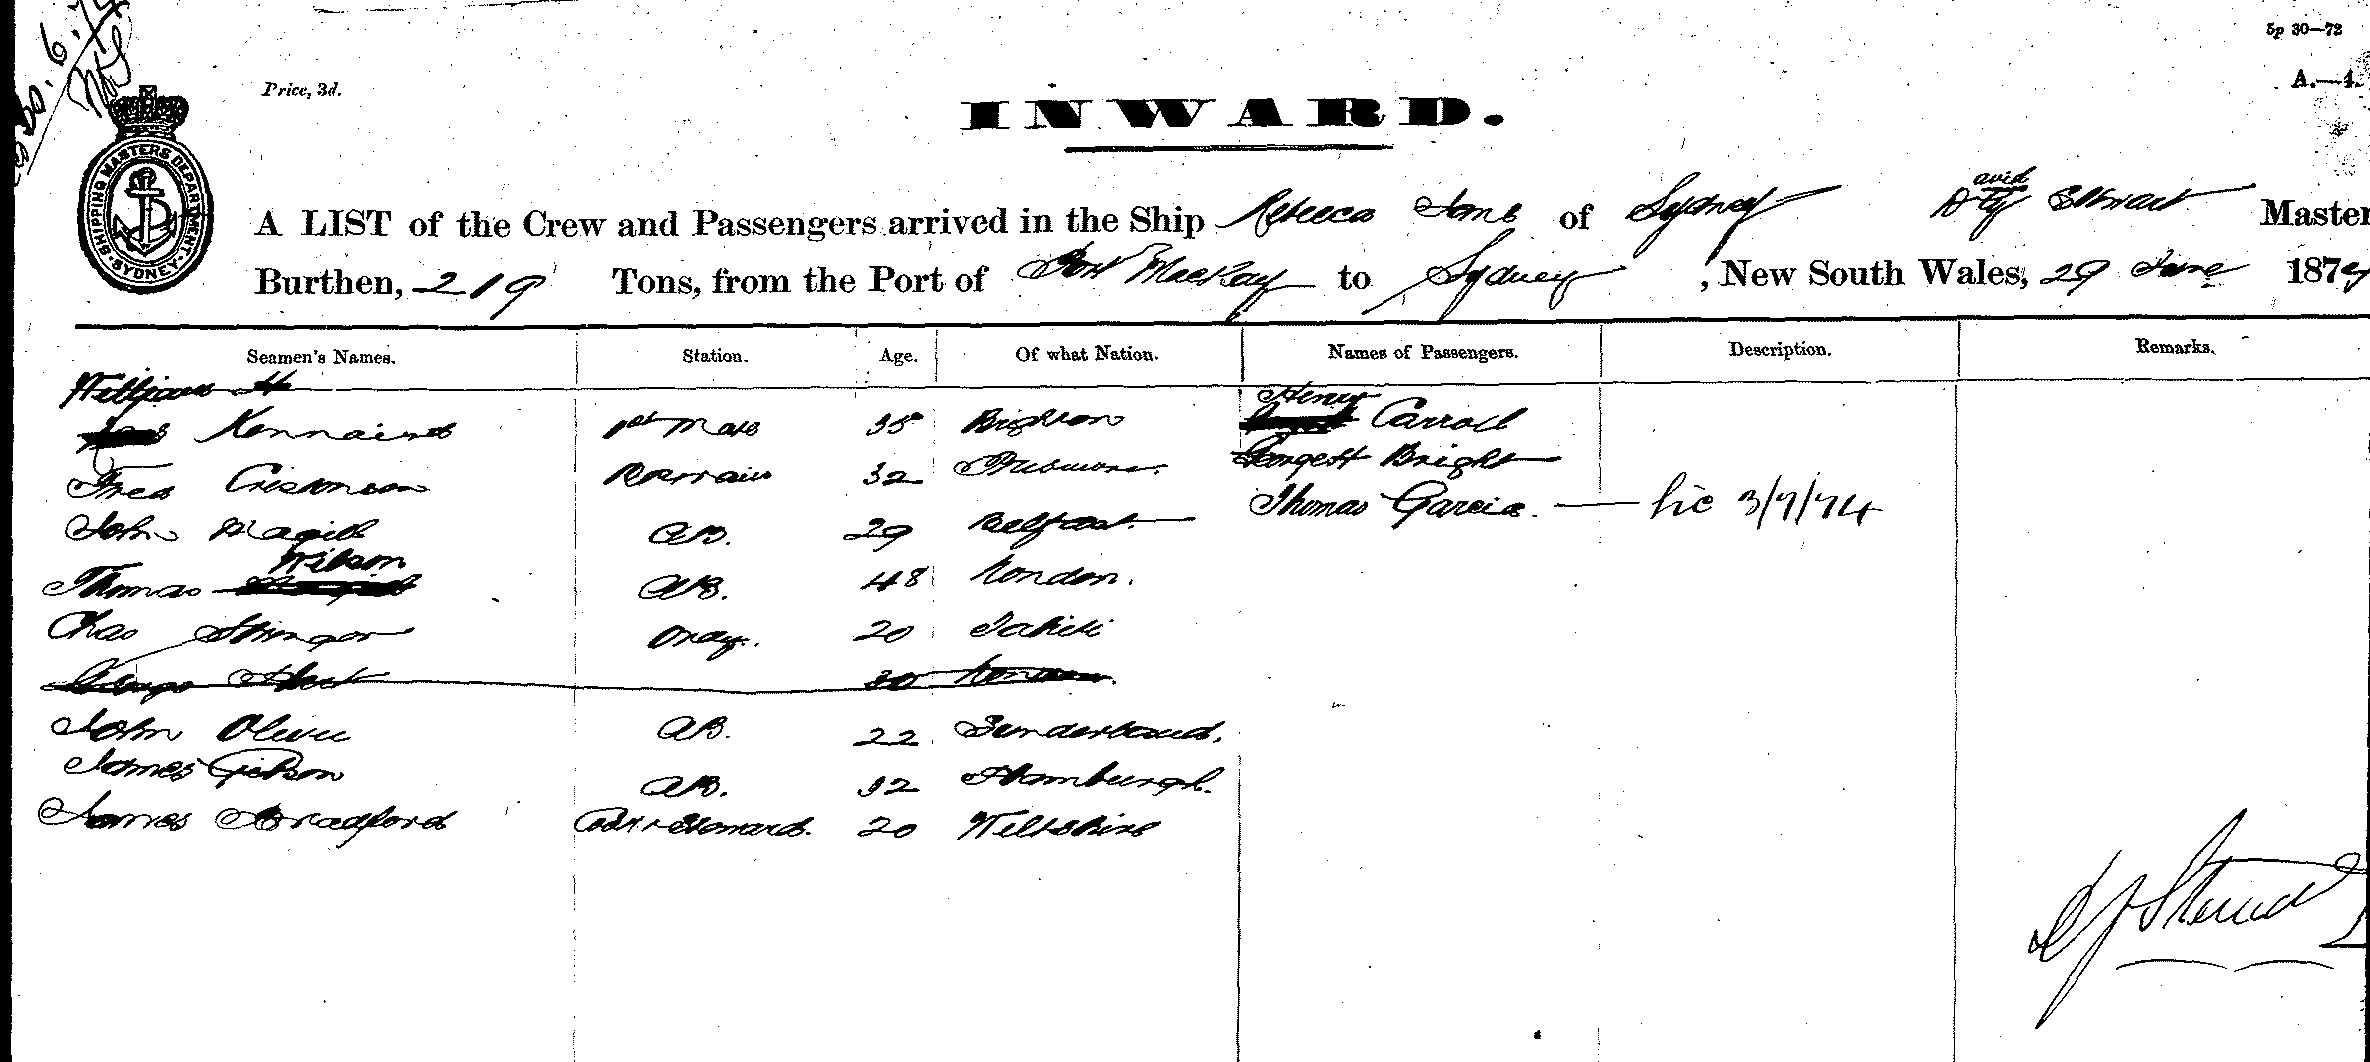 5p 30—72
Price, 3d.
A.—4.
INWARD.
SHIPPING MASTERS DEPARTMENT SYDNEY
A LIST of the Crew and Passengers arrived in the Ship Rebecca Jane of Sydney David Stewart Master
Burthen, 219 Tons, from the Port of Port MacKay to Sydney, New South Wales, 29 June 1874
Seamen's Names. Station. Age. Of what Nation. Names of Passengers. Description. Remarks.
William H Henry
1st Mate 35 Brighton Carroll
Fred 32 Bright
John Magill AB. 29 Belfast Thomas Garcia. — lic 3/7/74
Wilson
Thomas AB. 48 London.
Chas Stringer Ordy. 20 Tahiti
30
John Oliver AB. 22 Sunderland.
James Gibson AB. 32 Hamburgh.
James Bradford Cook & Steward. 20 Wiltshire